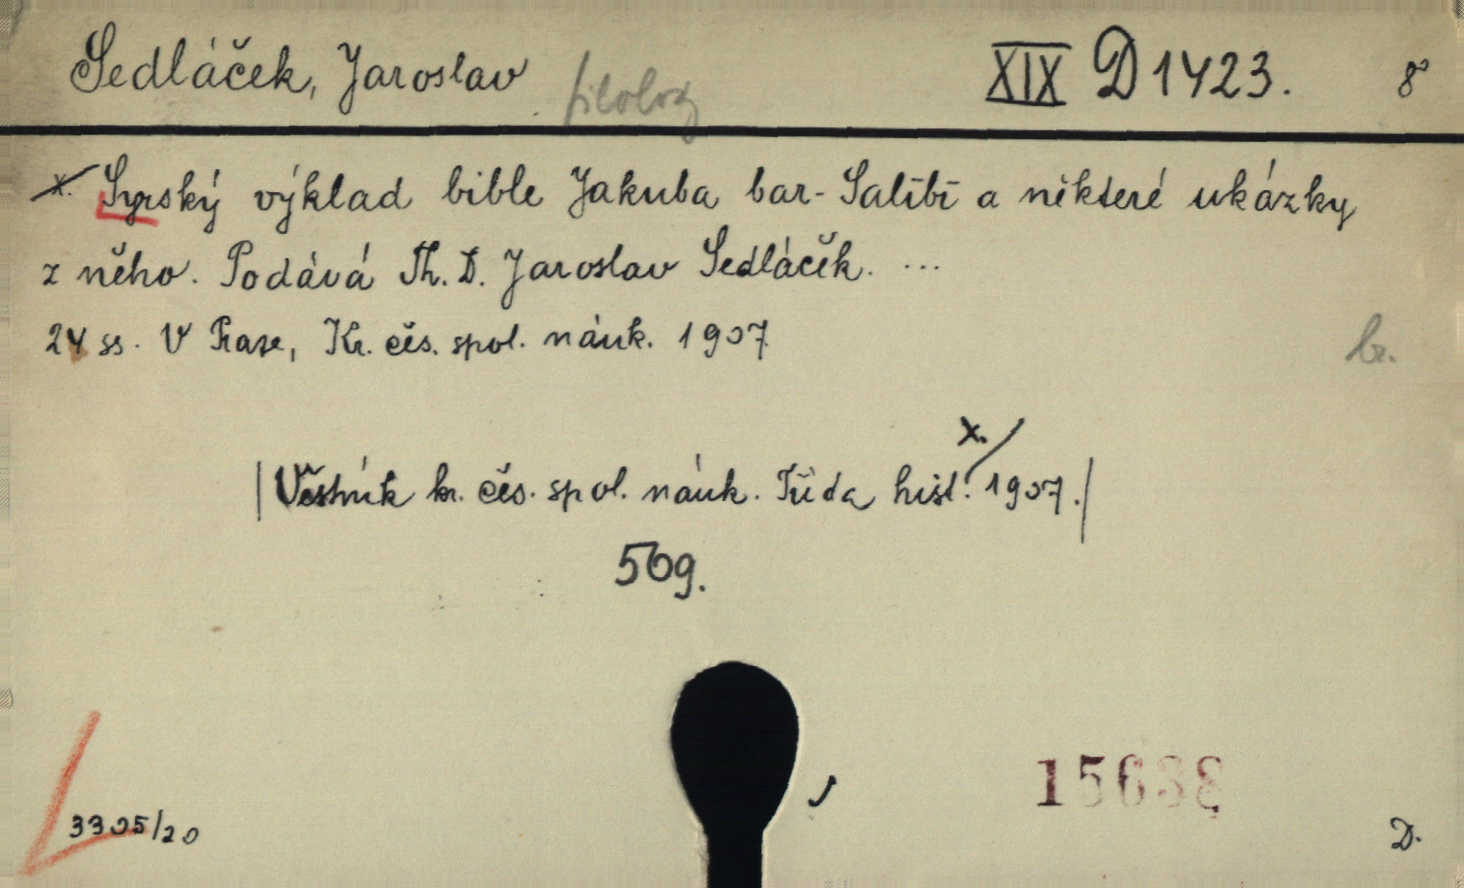 Sedláček, Jaroslav filolog XIX D 1423. 8°
x. Syrský výklad bible Jakuba bar-Salíbí a některé ukázky
z něho. Podává Th. D. Jaroslav Sedláček. ...
24 ss. V Praze, Kr. čes. spol. náuk. 1907
br.
x.
|Věstník kr. čes. spol. náuk. Třída hist. 1907.|
509.
15638
3305/20
D.